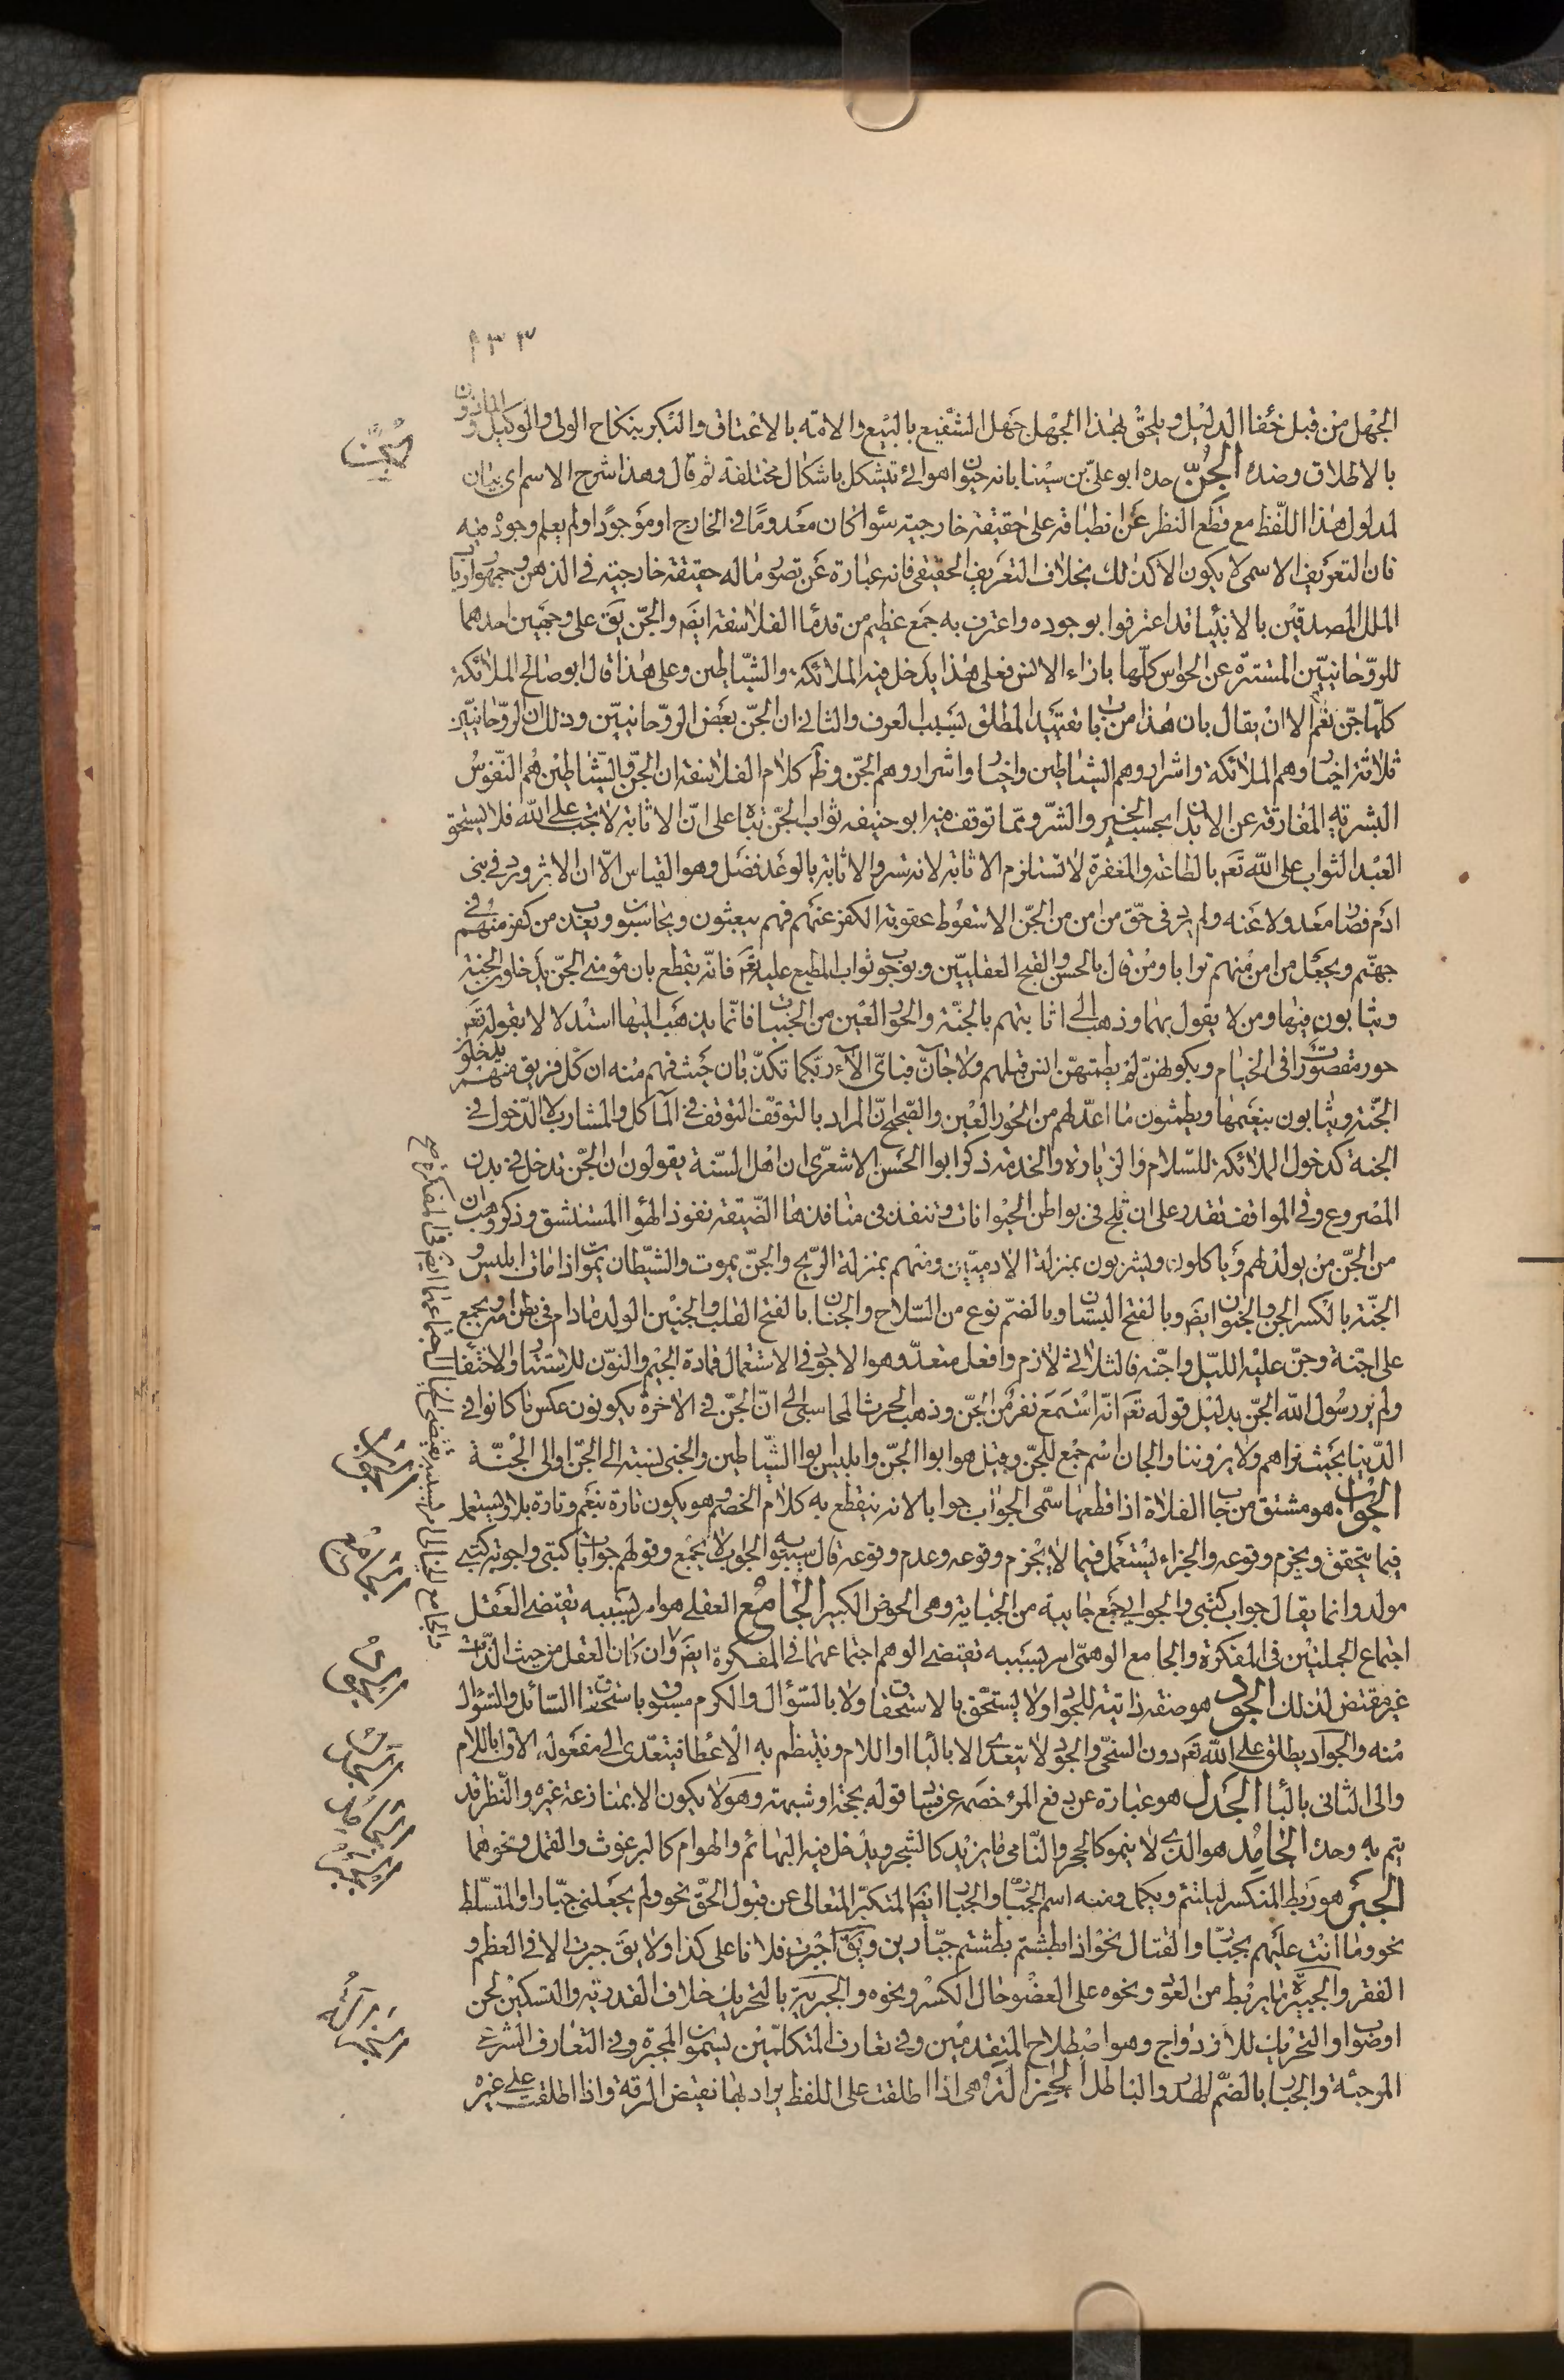 ١٣٣
الجهل من قبل خفاء الدليل ويلحق بهذا الجهل جهل الشفيع بالبيع والامة بالاعتاق والبكر بنكاح الولي والوكيل والماذون
بالاطلاق وضده الجن حده ابو علي بن سينا بانه حيوان هوائي تتشكل باشكال مختلفة ثم قال وهذا شرح الاسم اي بيان
لمدلول هذا اللفظ مع قطع النظر عن انطباقه على حقيقة خارجية سواء كان معدوما في الخارج او موجودا ولم يعلم وجوده فيه
فان التعريف الاسمي لا يكون الا كذلك بخلاف التعريف الحقيقي فانه عبارة عن تصور ماله حقيقة خارجية في الذهن وجمهور ارباب
الملل المصدقين بالانبيا قد اعترفوا بوجوده واعترف به جمع عظيم من قدما الفلاسفة ايضا والجن يق على وجهين احدهما
للروحانيين المستترة عن الحواس كلها بازاء الانس فعلى هذا يدخل فيه الملائكة والشياطين وعلى هذا قال ابو صالح الملائكة
كلها جن نعم الا ان يقال بان هذا من باب تقييد المطلق بسبب العرف والثاني ان الجن بعض الروحانيين وذلك ان الروحانيين
ثلاثة اخيار وهم الملائكة واشرار وهم الشياطين واخيار واشرار وهم الجن وظ كلام الفلاسفة ان الجن والشياطين هم النفوس
البشرية المفارقة عن الابدان بحسب الخير والشر ومما توقف فيه ابو حنيفه ثواب الجن بناء على ان الاثابة لا تجب على الله فلا يستحق
العبد الثواب على الله تع بالطاعة والمغفرة لا تستلزم الاثابة لانه ستر والاثابة بالوعد فضل وهو القياس الا ان الاثر ورد في بني
ادم فصار معدولا عنه ولم يرد في حق من امن من الجن الا سقوط عقوبة الكفر عنهم فهم يبعثون ويحاسبون ويعذب من كفر منهم في
جهنم ويجعل من امن منهم ترابا ومن قال بالحسن والقبح العقليين وبوجوب ثواب المطيع عليه تع فانه يقطع بان مؤمني الجن يدخلون الجنة
ويثابون فيها ومن لا يقول بهما وذهب الى اثابتهم بالجنة والحور العين من الجنيات فانما يذهب اليها استدلالا بقوله تع
حور مقصورات في الخيام وبكونهن لم يطمثهن انس قبلهم ولا جان فباي الاء ربكما تكذبان حيث فهم منه ان كل فريق منهم يدخلون
الجنة ويثابون بنعيمها ويطمثون ما اعد لهم من الحور العين والصحيح ان المراد بالتوقف التوقف في الماكل والمشارب لا الدخول في
الجنة كدخول الملائكة للسلام والزيارة والخدمة ذكر ابوا الحسن الاشعري ان اهل السنة يقولون ان الجن تدخل في بدن
المصروع وفي المواقف تقدر على ان تلج في بواطن الحيوانات وتنفذ في منافذها الضيقة نفوذ الهوا المستنشق وذكر وهب ان
من الجن من يولد لهم وياكلون ويشربون بمنزلة الادميين ومنهم بمنزلة الريح والجن يموت والشيطان يموت اذا مات ابليس و
الجنة بالكسر الجن والجنون ايض وبالفتح البستان وبالضم نوع من السلاح والجنان بالفتح القلب والجنين الولد مادام في بطن امه ويجمع
على اجنة وجن عليه الليل واجنه فالثلاثي لازم وافعل متعد وهوا الاجود في الاستعمال فمادة الجيم والنون للاستتار والاختفا
ولم ير رسول الله الجن بدليل قوله تع انه استمع نفر من الجن وذهب الحرث المحاسبي الى ان الجن في الاخرة يكونون عكس ما كانوا في
الدنيا بحيث نراهم ولا يروننا والجان اسم جمع للجن وقيل هو ابوا الجن وابليس بوا الشياطين والجني نسبة الى الجن او الى الجنة
الجواب هو مشتق من جاب الفلاة اذا قطعها سمي الجواب جوابا لانه ينقطع به كلام الخصم وهو يكون تارة بنعم وتارة بلا ويستعمل
فيما يتحقق ويجزم وقوعه والجزاء يستعمل فيما لا يجزم وقوعه وعدم وقوعه قال سيبويه الجواب لا يجمع وقولهم جوابات كتبي واجوبة كتبي
مولد وانما يقال جواب كتبي والجوابي جمع جابية من الجباية وهي الحوض الكبير الجامع العقلي هو امر بسببه يقتضي العقل
اجتماع الجملتين في المفكرة والجامع الوهمي امر بسببه يقتضي الوهم اجتماعهما في المفكرة ايض وان كان العقل من حيث الذات
غير مقتض لذلك الجود هو صفة ذاتية للجواد ولا يستحق بالاستحقاق ولا بالسؤال والكرم مسبوق باستحقاق السائل والسؤال
منه والجواد يطلق على الله تع دون السخي والجود لا يتعدى الا بالبا او اللام وينتظم به الاعطا فيتعدى الى مفعوله الاول باللام
والى الثاني بالبا الجدل هو عبارة عن دفع المرء خصمه عن فساد قوله بحجة او شبهة وهو لا يكون الا بمنازعة غيره والنظر قد
يتم به وحده الجامد هو الذي لا ينمو كالحجر والنامي ما يزيد كالشجر ويدخل فيه البهائم والهوام كالبرغوث والقمل ونحوهما
الجبر هو ربط المنكسر ليلتئم ويكمل ومنه اسم الجبار والجبار ايض المتكبر المتعالي عن قبول الحق نحو ولم يجعلني جبارا والمتسلط
نحو وما انت عليهم بجبار والقتال نحو اذا بطشتم بطشتم جبارين ويق اجبرت فلانا على كذا ولا يق جبرت الا في العظم و
الفقر والجبيرة ما يربط من العود ونحوه على العضو حال الكسر ونحوه والجبرية بالتحريك خلاف القدرية والتسكين لحن
او صواب والتحريك للازدواج وهو اصطلاح المتقدمين وفي تعارف المتكلمين يسمون المجبرة وفي التعارف الشرعي
المرجئة والجبار بالضم الهدر والباطل الجزالة هي اذا اطلقت على اللفظ يراد بها نقيض الرقة واذا اطلقت على غيره
الجواب
الجامع
الجود
الجدل
الجامد
الجبر
الجزالة